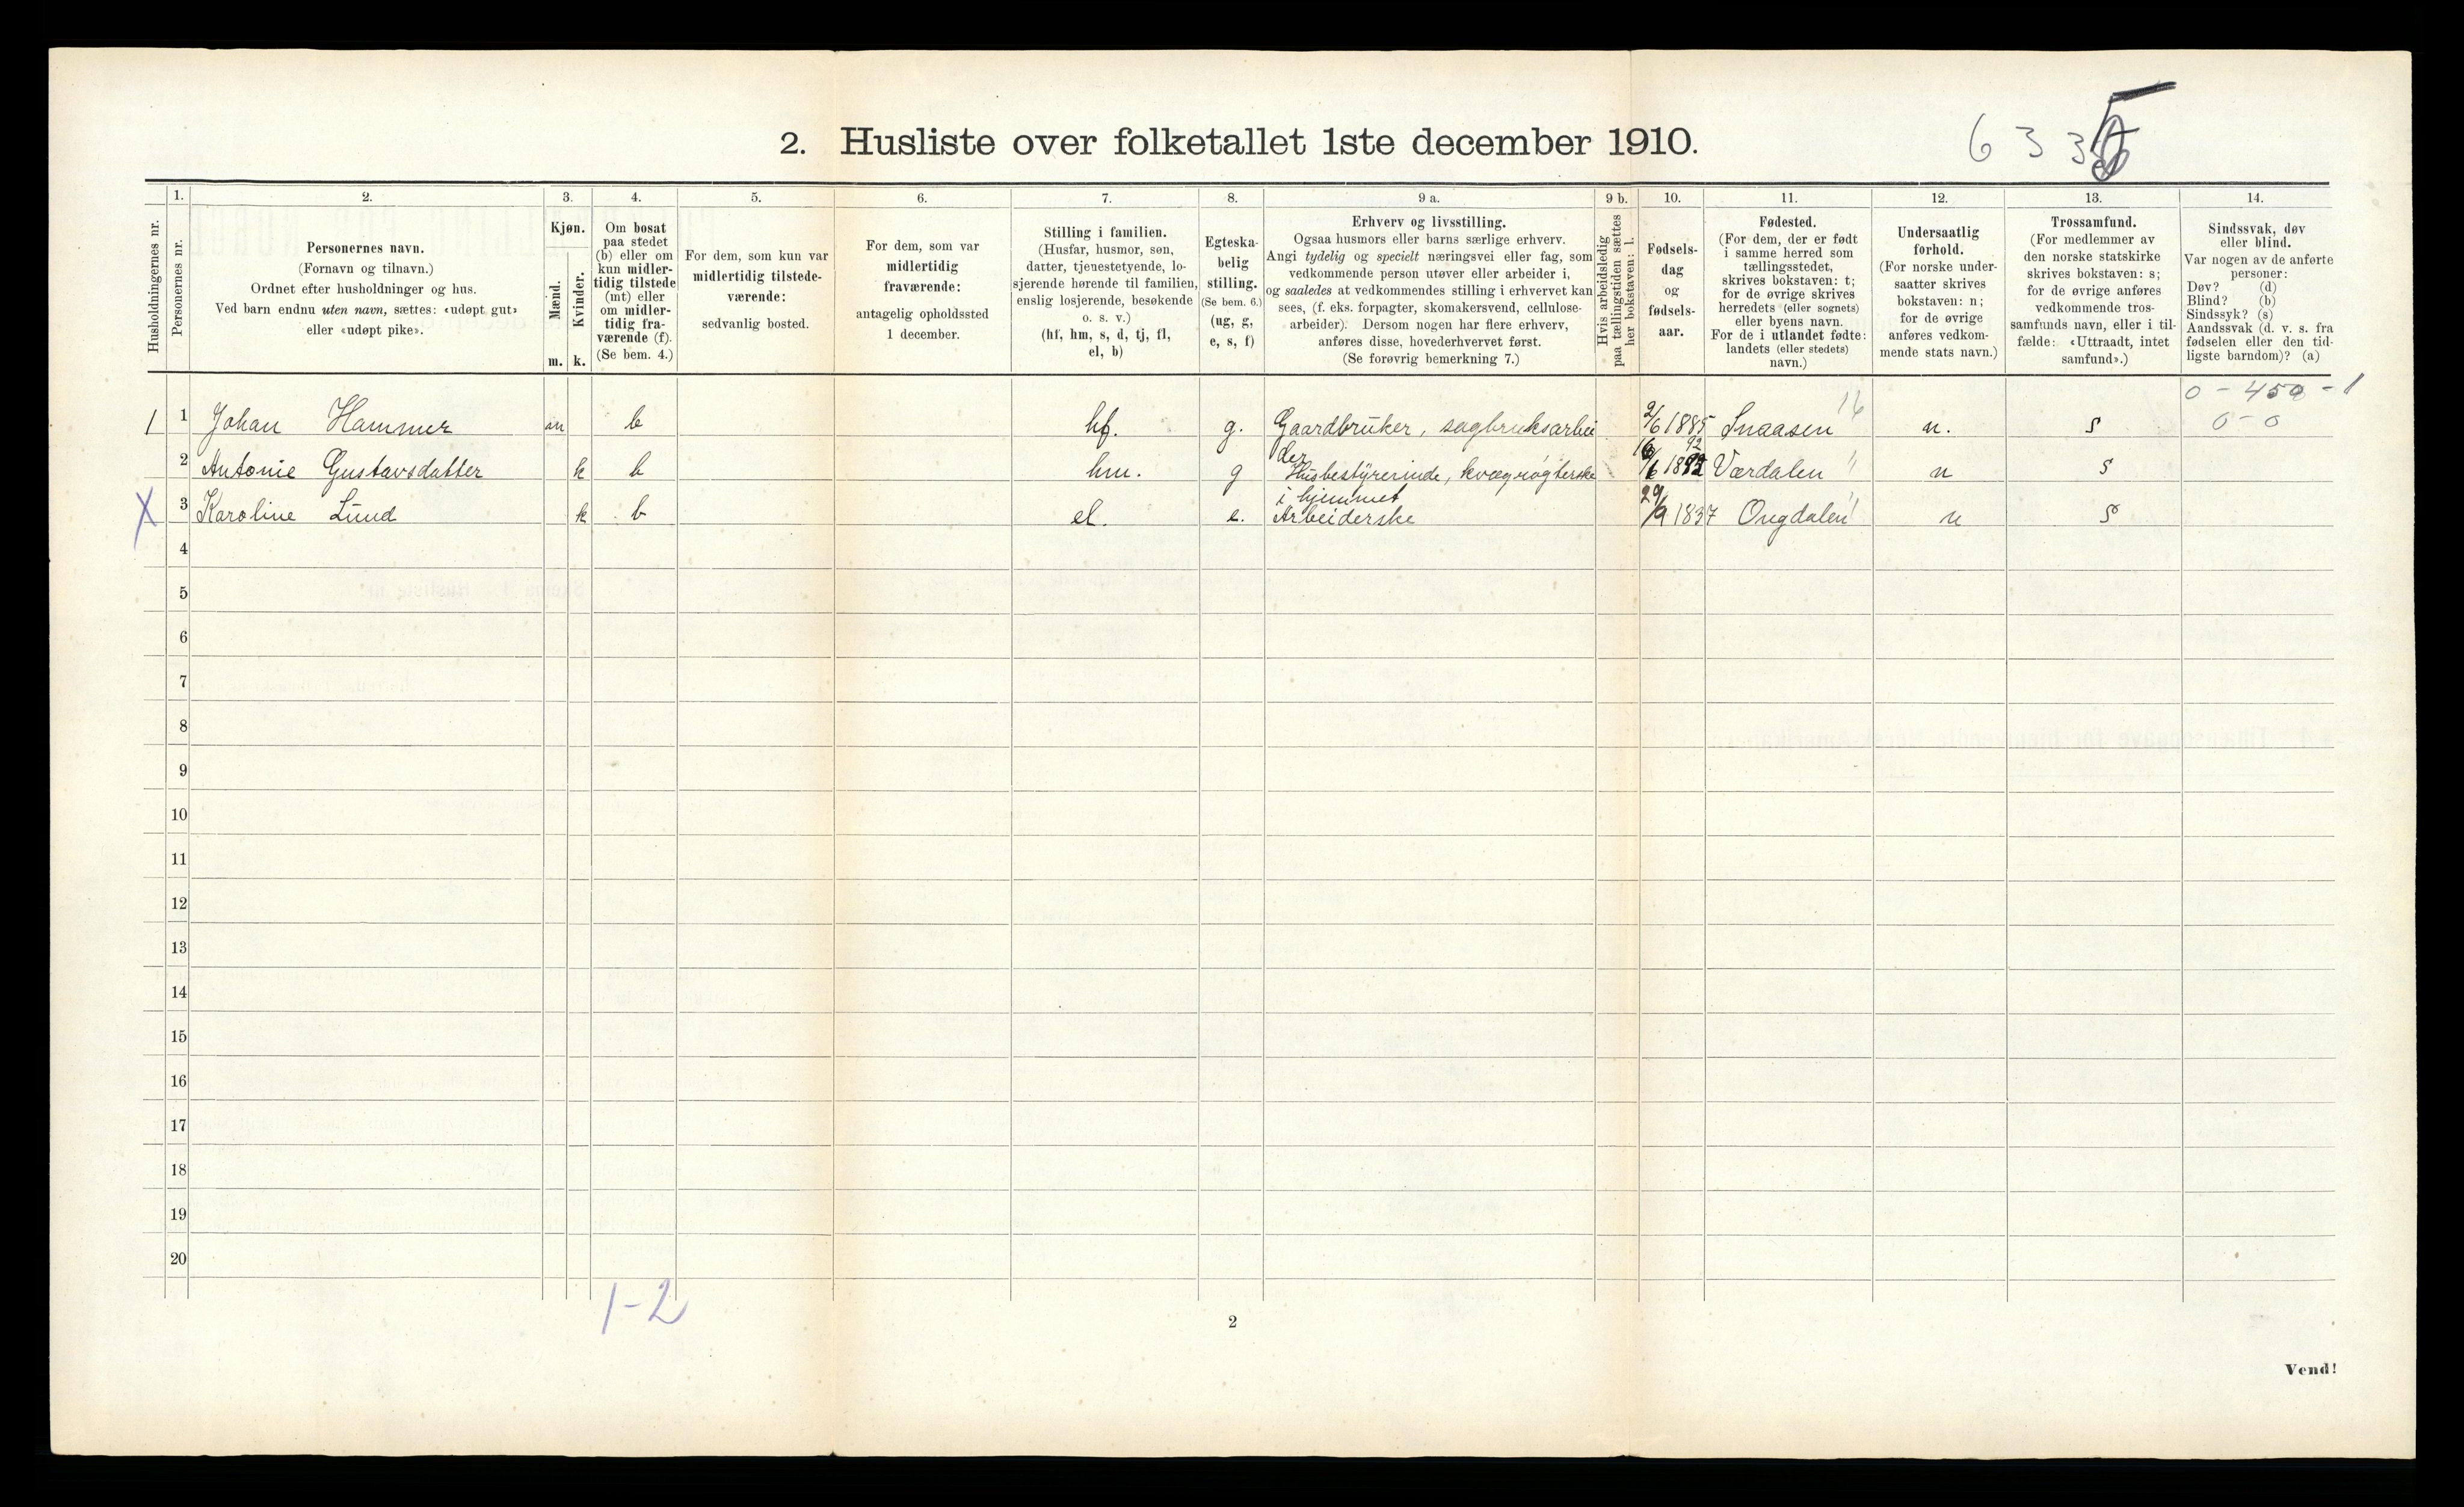 2. Husliste over folketallet 1ste december 1910.
6 3 3 5
Husholdningernes nr.
1.
Personernes nr.
2.
Personernes navn.
(Fornavn og tilnavn.)
Ordnet efter husholdninger og hus.
Ved barn endnu uten navn, sættes: «udøpt gut»
eller «udøpt pike».
3.
Kjøn.
Mænd.
Kvinder.
m. k.
4.
Om bosat
paa stedet
(b) eller om
kun midler-
tidig tilstede
(mt) eller
om midler-
tidig fra-
værende (f).
(Se bem. 4.)
5.
For dem, som kun var
midlertidig tilstede-
værende:
sedvanlig bosted.
6.
For dem, som var
midlertidig
fraværende:
antagelig opholdssted
1 december.
7.
Stilling i familien.
(Husfar, husmor, søn,
datter, tjenestetyende, lo-
sjerende hørende til familien,
enslig losjerende, besøkende
o. s. v.)
(hf, hm, s, d, tj, fl,
el, b)
8.
Egteska-
belig
stilling.
(Se bem. 6.)
(ug, g,
e, s, f)
9 a.
Erhverv og livsstilling.
Ogsaa husmors eller barns særlige erhverv.
Angi tydelig og specielt næringsvei eller fag, som
vedkommende person utøver eller arbeider i,
og saaledes at vedkommendes stilling i erhvervet kan
sees, (f. eks. forpagter, skomakersvend, cellulose-
arbeider). Dersom nogen har flere erhverv,
anføres disse, hovederhvervet først.
(Se forøvrig bemerkning 7.)
9 b.
Hvis arbeidsledig
paa tællingstiden sættes
her bokstaven: l.
10.
Fødsels-
dag
og
fødsels-
aar.
11.
Fødested.
(For dem, der er født
i samme herred som
tællingsstedet,
skrives bokstaven: t;
for de øvrige skrives
herredets (eller sognets)
eller byens navn.
For de i utlandet fødte:
landets (eller stedets)
navn.)
12.
Undersaatlig
forhold.
(For norske under-
saatter skrives
bokstaven: n;
for de øvrige
anføres vedkom-
mende stats navn.)
13.
Trossamfund.
(For medlemmer av
den norske statskirke
skrives bokstaven: s;
for de øvrige anføres
vedkommende tros-
samfunds navn, eller i til-
fælde: «Uttraadt, intet
samfund».)
14.
Sindssvak, døv
eller blind.
Var nogen av de anførte
personer:
Døv? (d)
Blind? (b)
Sindssyk? (s)
Aandssvak (d. v. s. fra
fødselen eller den tid-
ligste barndom)? (a)
0 - 450 - 1
0 - 0
1 1 Johan Hammer m b hf. g. Gaardbruker, sagbruksarbei 2/6 1885 Snaasen 16 n. s
der
2 Antonie Gustavsdatter k b hm. g Husbestyrerinde, kvægrøgterske 16/6 1892 Værdalen " n s
92
i hjemmet
X 3 Karoline Lund k b el. e. Arbeiderske 29/9 1837 Ongdalen " n s
4
5
6
7
8
9
10
11
12
13
14
15
16
17
18
19
20
1-2
2
Vend!